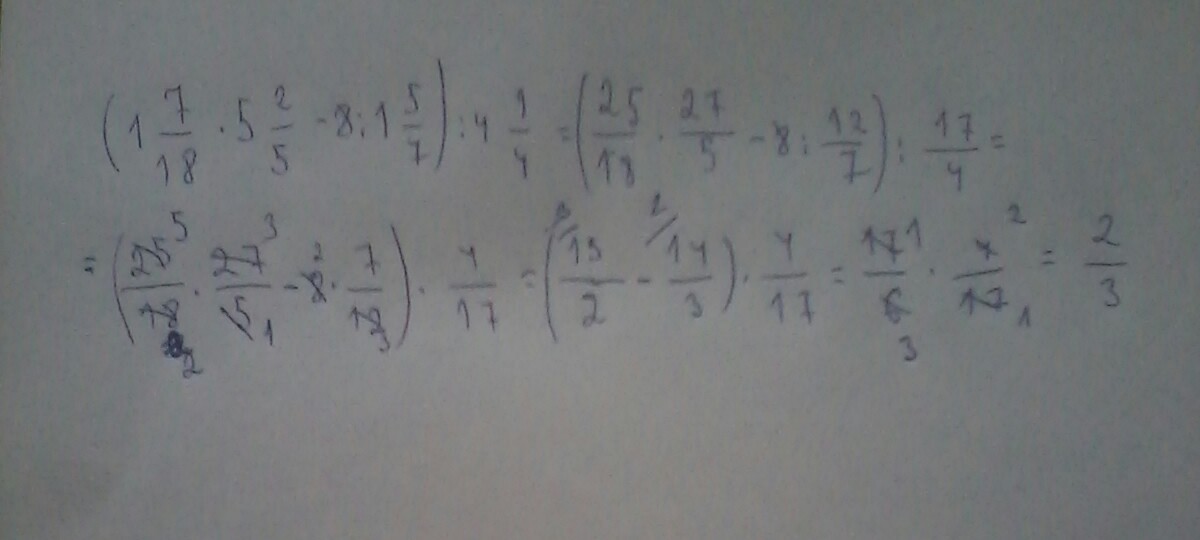 (1 7/18 · 5 2/5 - 8 : 1 5/7) : 4 1/4 = (25/18 · 27/5 - 8 : 12/7) : 17/4 =
= (25 5/18 2 · 27 3/5 1 - 8 2 · 7/12 3) · 4/17 = (3/ 15/2 - 2/ 14/3) · 4/17 = 17 1/6 3 · 4 2/17 1 = 2/3